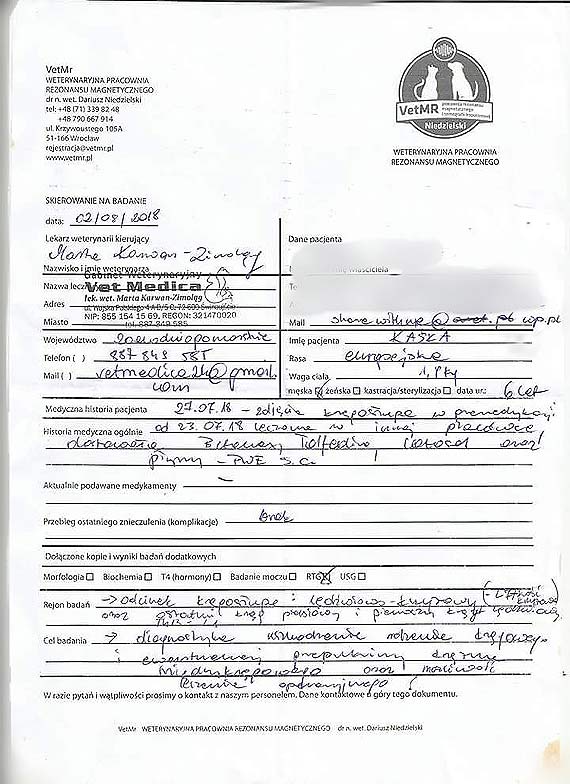 VetMr
WETERYNARYJNA PRACOWNIA
REZONANSU MAGNETYCZNEGO
dr n. wet. Dariusz Niedzielski
tel: +48 (71) 339 82 48
+48 790 667 914
ul. Krzywoustego 105A
51-166 Wrocław
rejestracja@vetmr.pl
www.vetmr.pl
VetMR
Niedzielski
WETERYNARYJNA PRACOWNIA
REZONANSU MAGNETYCZNEGO
SKIEROWANIE NA BADANIE
data: 02/08/2018
Lekarz weterynarii kierujący
Marta Karwan-Zimoląg
Nazwisko i imię weterynarza
Gabinet Weterynaryjny
Nazwa
Vet Medica
lek. wet. Marta Karwan-Zimoląg
Adres
NIP: 855 154 15 69, REGON: 321470020
Miasto
tel. 887-849-585
Województwo zachodniopomorskie
Telefon ( ) 887 849 585
Mail ( ) vetmedica24@gmail.
com
Dane pacjenta
właściciela
Mail
Imię pacjenta KASKA
Rasa europejska
Waga ciała
męska żeńska kastracja/sterylizacja data ur.: 6 lat
Medyczna historia pacjenta 27.07.18 - zdjęcie kręgosłupa w premedykacji
Historia medyczna ogólnie od 23.07.18 leczona w innej placówce
dostawała oraz
płyny - PWE s.c.
Aktualnie podawane medykamenty -
Przebieg ostatniego znieczulenia (komplikacje) brak
Dołączone kopie i wyniki badań dodatkowych
Morfologia Biochemia T4 (hormony) Badanie moczu RTG USG
Rejon badań → odcinek kręgosłupa: lędźwiowo-krzyżowy
oraz ostatni kręg piersiowy i pierwszy kręg lędźwiowy
Cel badania → diagnostyka uszkodzenia rdzenia kręgowego
i ewentualnej przepukliny krążka
międzykręgowego oraz możliwość
leczenia operacyjnego!
W razie pytań i wątpliwości prosimy o kontakt z naszym personelem. Dane kontaktowe u góry tego dokumentu.
VetMr WETERYNARYJNA PRACOWNIA REZONANSU MAGNETYCZNEGO dr n. wet. Dariusz Niedzielski